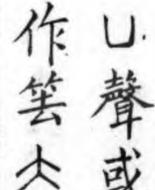 凵聲或
作䇢大